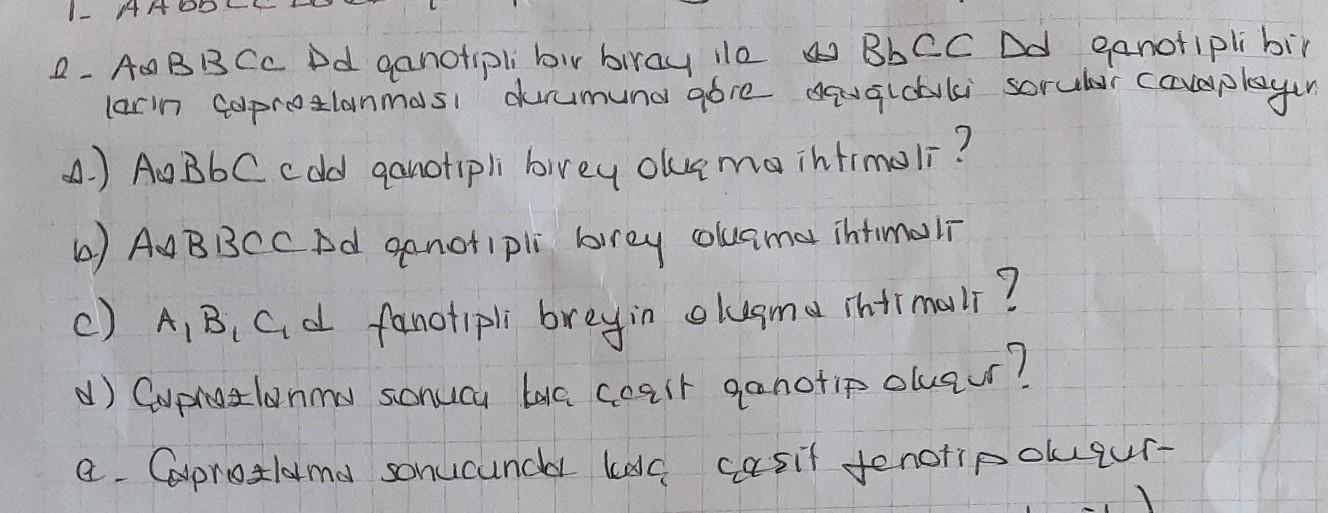 1- AABbCC
2- AaBBCc Dd genotipli bir birey ile aa BbCC Dd genotipli bir
lerin çaprazlanması durumuna göre aşağıdaki sorular cevaplayın
A.) AaBbC c dd genotipli birey oluşma ihtimali?
b) AaBBCC Dd genotipli birey oluşma ihtimali
c) A, B, C, d fenotipli breyin oluşma ihtimali?
d) Çaprazlanma sonucu kaç çeşit genotip oluşur?
e- Çaprazlama sonucunda kaç çeşit fenotip oluşur-